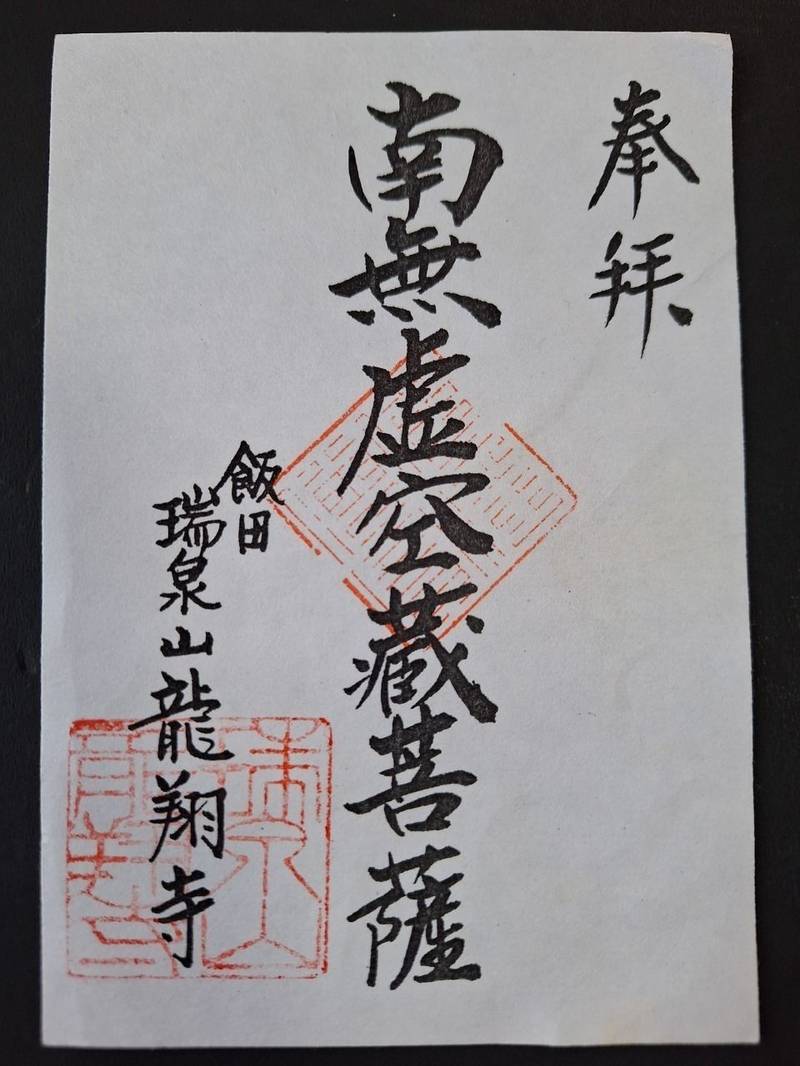 奉拝
南無虚空蔵菩薩
飯田
瑞泉山龍翔寺